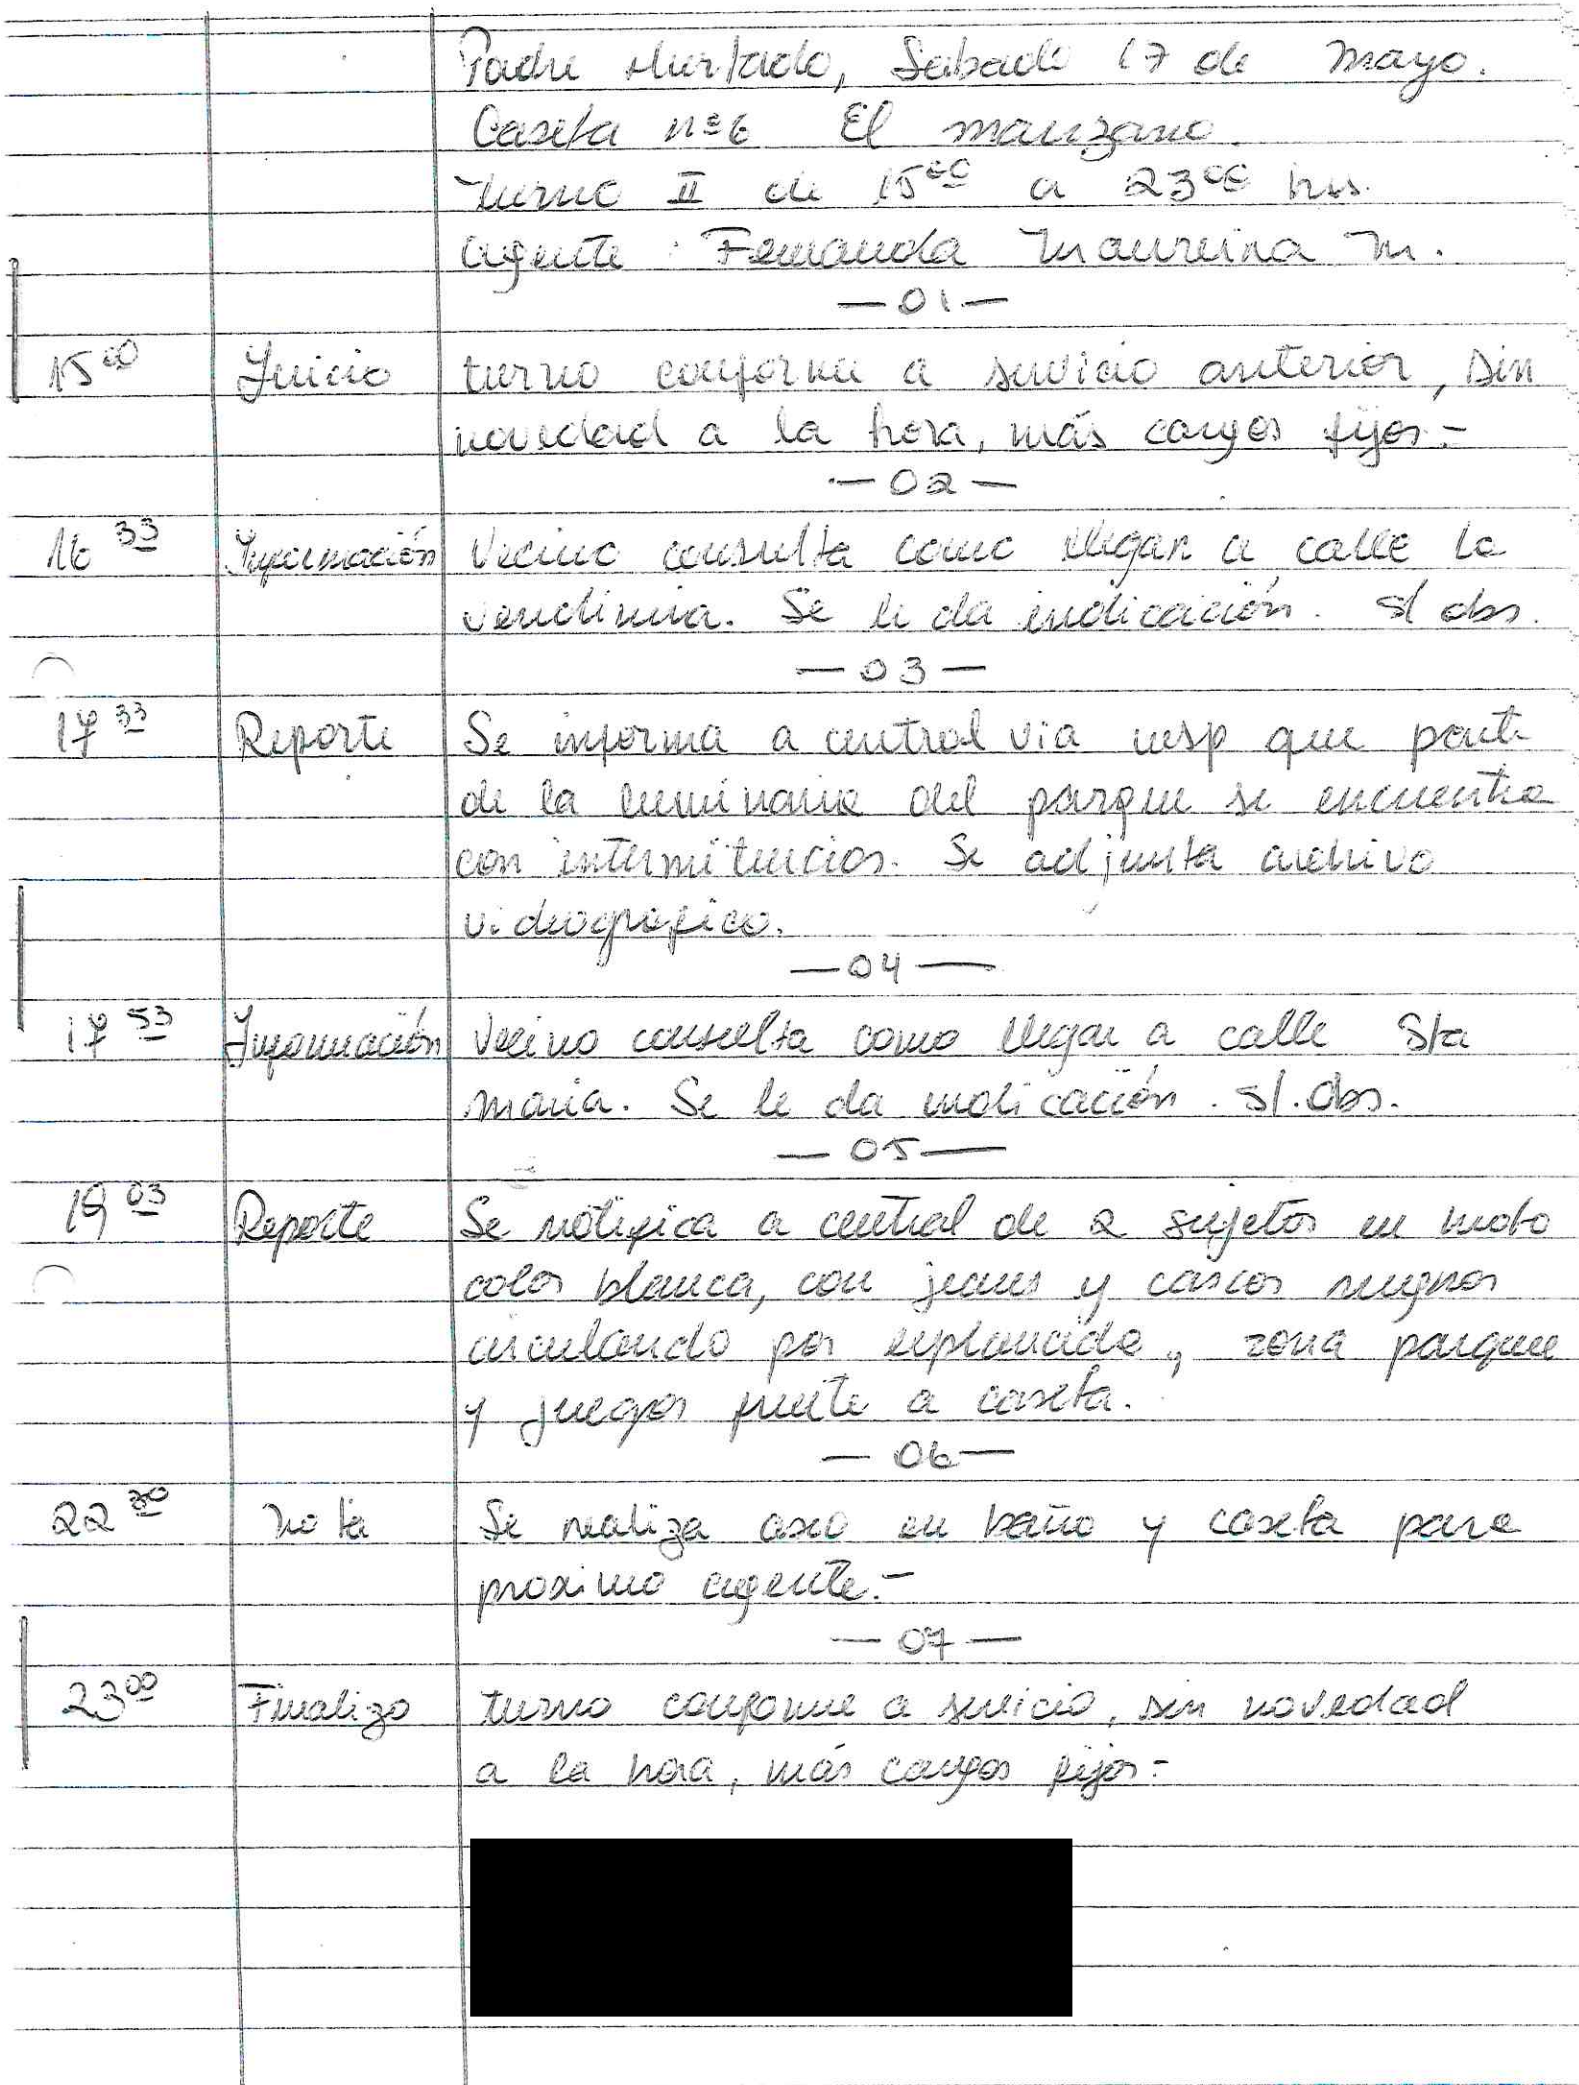 Padre Hurtado, Sabado 17 de Mayo.
Caseta nº6 El manzano.
turno II de 15⁰⁰ a 23⁰⁰ hrs.
agente : Fernanda Maureina M.
— 01 —
15⁰⁰ Inicio turno conforme a servicio anterior, sin
novedad a la hora, más cargos fijos.-
— 02 —
16³³ Información Vecino consulta como llegar a calle la
vendimia. Se le da indicación. s/ obs.
— 03 —
17³³ Reporte Se informa a central via wsp que parte
de la luminaria del parque se encuentra
con intermitencias. Se adjunta archivo
videografico.
— 04 —
17⁵³ Información Vecino consulta como llegar a calle Sta
maria. Se le da indicación. s/. Obs.
— 05 —
19⁰³ Reporte Se notifica a central de 2 sujetos en moto
color blanca, con jeans y cascos negros
circulando por explanada, zona parque
y juegos frente a caseta.
— 06 —
22³⁰ Nota Se realiza aseo en baño y caseta para
proximo agente.-
— 07 —
23⁰⁰ Finalizo turno conforme a servicio, sin novedad
a la hora, más cargos fijos.-